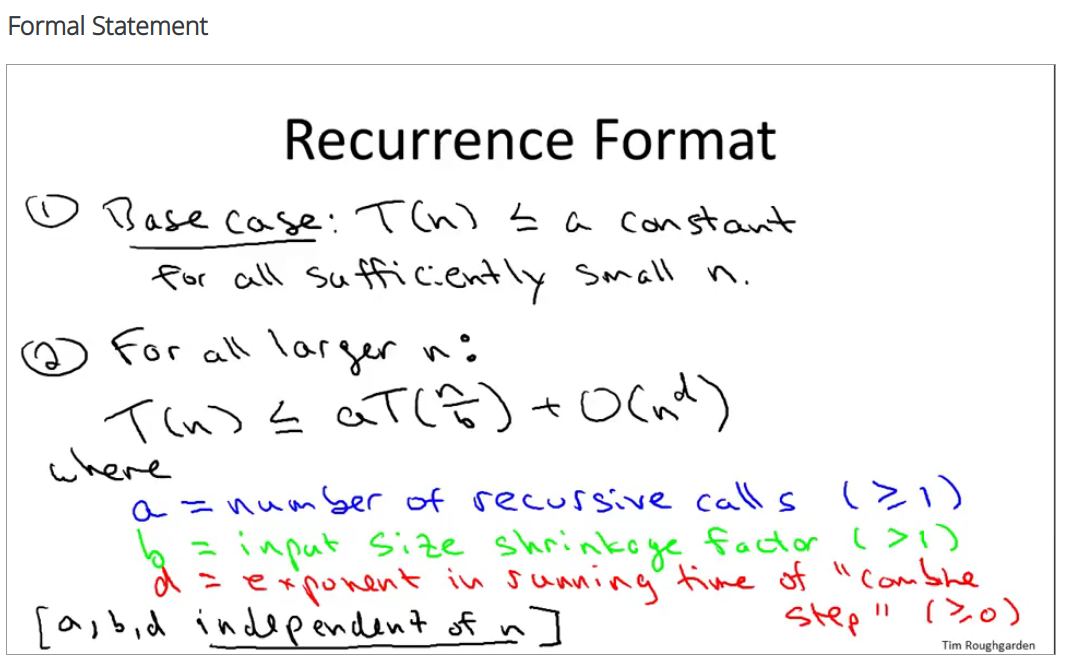 Formal Statement
Recurrence Format
① Base case: T(n) ≤ a constant
for all sufficiently small n.
② For all larger n:
T(n) ≤ aT(n/b) + O(n^d)
where
a = number of recursive calls (≥1)
b = input size shrinkage factor (>1)
d = exponent in running time of "combine
step" (≥0)
[a,b,d independent of n]
Tim Roughgarden